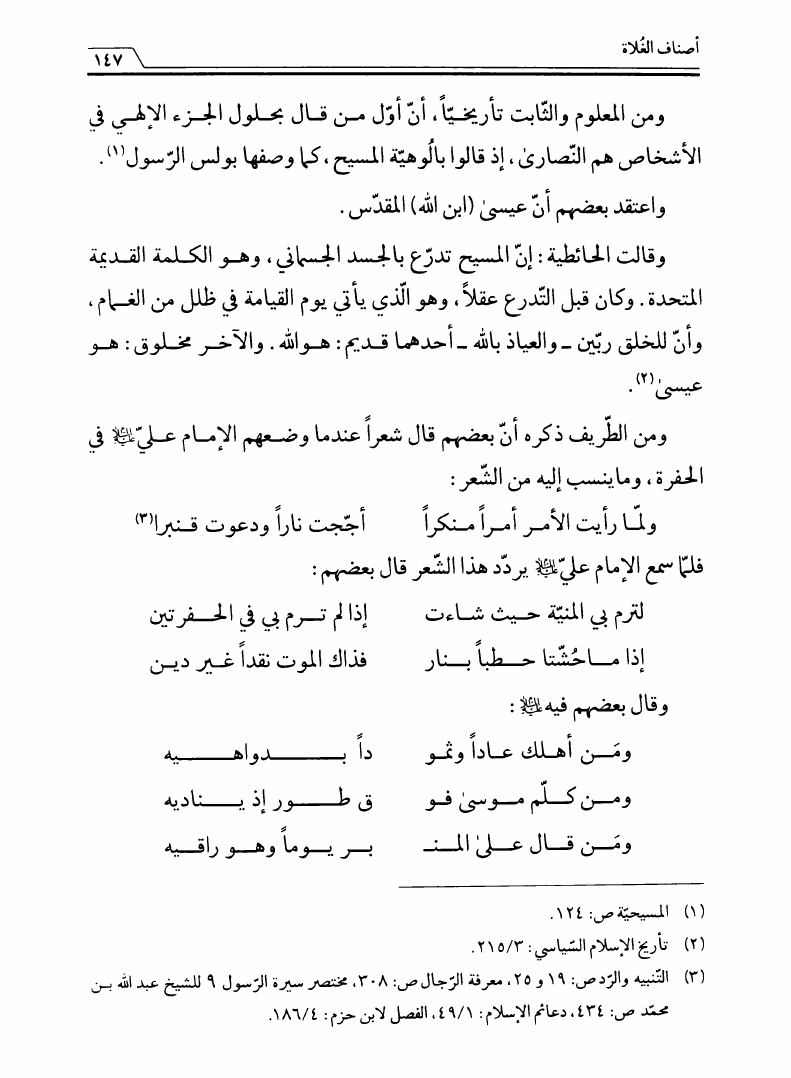 أصناف الغُلاة
١٤٧
ومن المعلوم والثّابت تأريخيّاً، أنّ أوّل من قال بحلول الجزء الإلهي في
الأشخاص هم النّصارىٰ، إذ قالوا بأُلوهيّة المسيح، كما وصفها بولس الرّسول(١).
واعتقد بعضهم أنّ عيسىٰ (ابن الله) المقدّس.
وقالت الحائطية: إنّ المسيح تدرّع بالجسد الجسماني، وهو الكلمة القديمة
المتحدة. وكان قبل التّدرع عقلاً، وهو الّذي يأتي يوم القيامة في ظلل من الغمام،
وأنّ للخلق ربّين ـ والعياذ بالله ـ أحدهما قديم: هو الله. والآخر مخلوق: هو
عيسىٰ(٢).
ومن الطّريف ذكره أنّ بعضهم قال شعراً عندما وضعهم الإمام عليّ عليه السلام في
الحفرة، وماينسب إليه من الشّعر:
ولمّا رأيت الأمر أمراً منكراً أجّجت ناراً ودعوت قنبرا(٣)
فلمّا سمع الإمام عليّ عليه السلام يردّد هذا الشّعر قال بعضهم:
لترم بي المنيّة حيث شاءت إذا لم ترم بي في الحفرتين
إذا ما حُشّتا حطباً بنار فذاك الموت نقداً غير دين
وقال بعضهم فيه عليه السلام:
ومَن أهلك عاداً وثمو داً بدواهيه
ومن كلّم موسىٰ فو ق طور إذ يناديه
ومَن قال علىٰ المنـ بر يوماً وهو راقيه
(١) المسيحيّة ص: ١٢٤.
(٢) تأريخ الإسلام السّياسي: ٢١٥/٣.
(٣) التّنبيه والرّد ص: ١٩ و ٢٥، معرفة الرّجال ص: ٣٠٨، مختصر سيرة الرّسول ٩ للشيخ عبد الله بن
محمّد ص: ٤٣٤، دعائم الإسلام: ٤٩/١، الفصل لابن حزم: ١٨٦/٤.